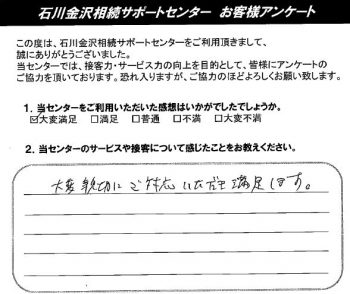 石川金沢相続サポートセンター お客様アンケート
この度は、石川金沢相続サポートセンターをご利用頂きまして、
誠にありがとうございました。
当センターでは、接客力・サービス力の向上を目的として、皆様にアンケートの
ご協力を頂いております。恐れ入りますが、ご協力のほどよろしくお願い致します。
1. 当センターをご利用いただいた感想はいかがでしたでしょうか。
☒大変満足 □満足 □普通 □不満 □大変不満
2. 当センターのサービスや接客について感じたことをお教えください。
大変親切にご対応いただき満足します。